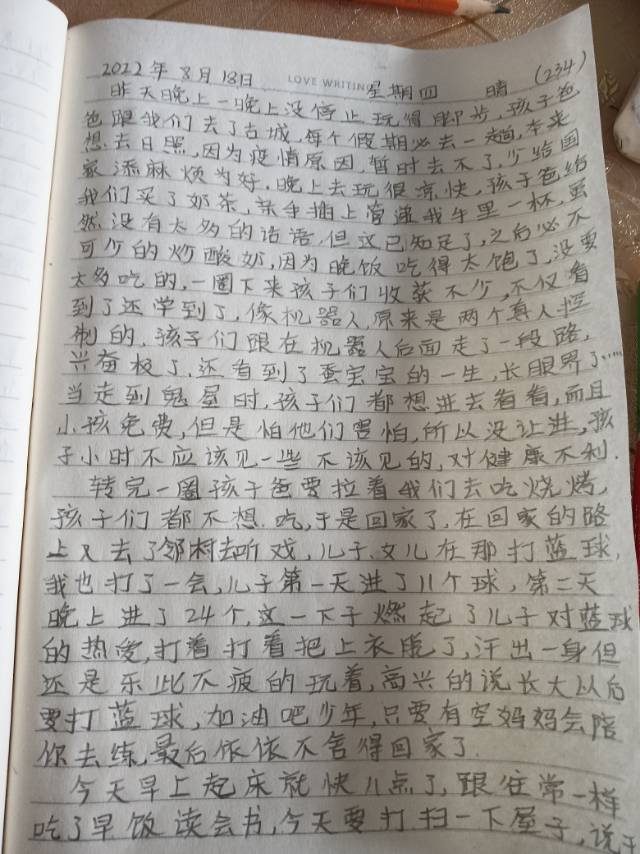 2022年8月18日 LOVE WRITIN 星期四 晴 (234)
昨天晚上一晚上没停止玩得脚步,孩子爸
爸跟我们去了古城,每个假期必去一趟,本来
想去日照,因为疫情原因,暂时去不了,少给国
家添麻烦为好,晚上去玩很凉快,孩子爸给
我们买了奶茶,亲手插上管递我手里一杯,虽
然没有太多的话语,但这已知足了,之后必不
可少的炒酸奶,因为晚饭吃得太饱了,没要
太多吃的,一圈下来孩子们收获不少,不仅看
到了还学到了,像机器人,原来是两个真人控
制的,孩子们跟在机器人后面走了一段路,
兴奋极了,还看到了蚕宝宝的一生,长眼界了……
当走到鬼屋时,孩子们都想进去看看,而且
小孩免费,但是怕他们害怕,所以没让进,孩
子小时不应该见一些不该见的,对健康不利.
转完一圈孩子爸要拉着我们去吃烧烤,
孩子们都不想.吃,于是回家了,在回家的路
上又去了邻村去听戏,儿子.女儿在那打蓝球,
我也打了一会,儿子第一天进了11个球,第二天
晚上进了24个,这一下子燃起了儿子对蓝球
的热爱,打着打着把上衣脱了,汗出一身但
还是乐此不疲的玩着,高兴的说长大以后
要打蓝球,加油吧少年,只要有空妈妈会陪
你去练,最后依依不舍得回家了.
今天早上起床就快八点了,跟往常一样
吃了早饭读会书,今天要打扫一下屋子,说干